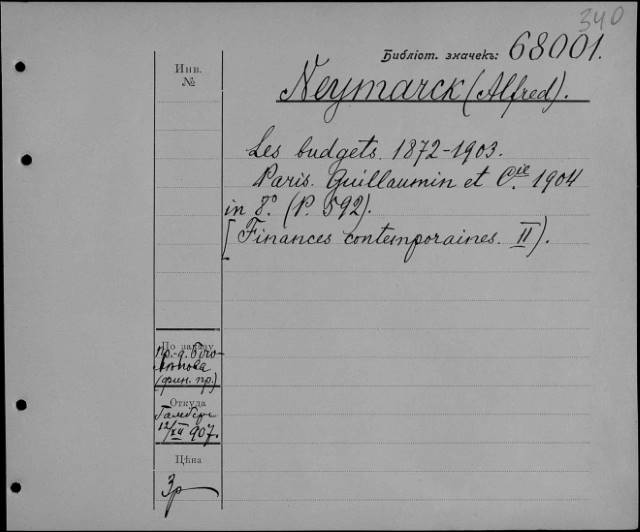 340
Библіот. значекъ: 68001.
Инв.
№
Neymarck (Alfred).
Les budgets. 1872-1903.
Paris. Guillaumin et Cie. 1904
in 8° (P. 592).
[Finances contemporaines. II).
По заказу
пр.-д.
(фин. пр.)
Откуда
12/XII 907.
Цѣна
3р